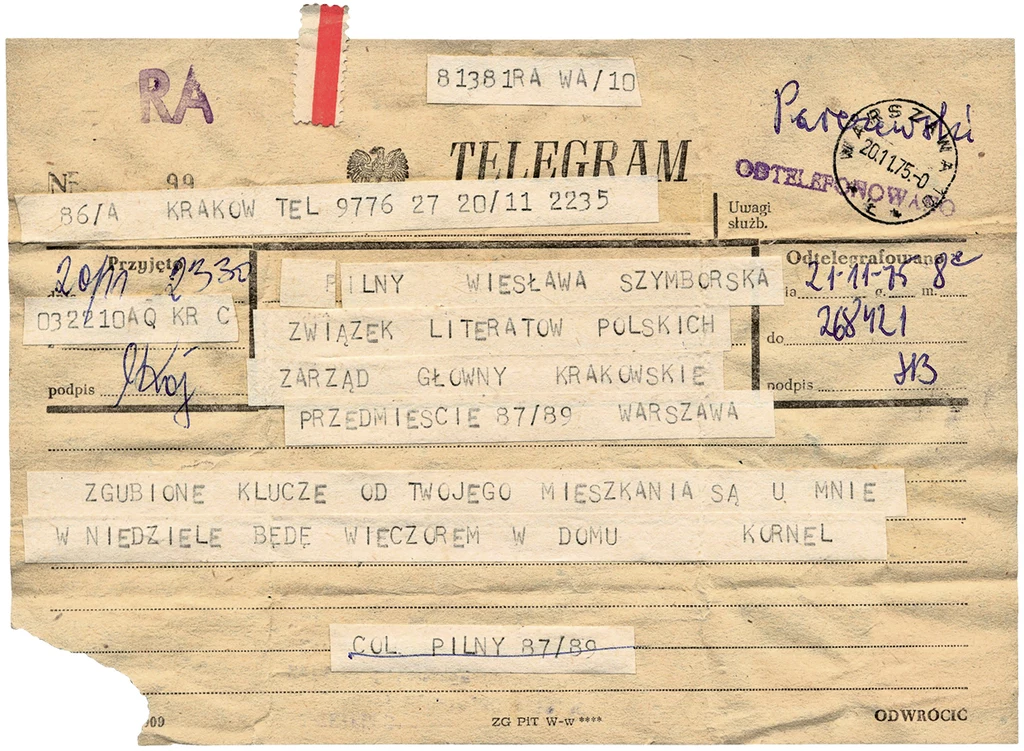 81381RA WA/10
RA
WARSZAWA
20.11.75.-0
TELEGRAM
ODTELEFONOWANO
Nr 99
86/A KRAKOW TEL 9776 27 20/11 2235
Uwagi
służb.
Przyjęto
20/11 2330
032210AQ KR C
podpis
PILNY WIESŁAWA SZYMBORSKA
ZWIĄZEK LITERATOW POLSKICH
ZARZĄD GŁOWNY KRAKOWSKIE
PRZEDMIEŚCIE 87/89 WARSZAWA
Odtelegrafowano
21-11-75 g. m.
do 268421
podpis HB
ZGUBIONE KLUCZE OD TWOJEGO MIESZKANIA SĄ U MNIE
W NIEDZIELE BĘDĘ WIECZOREM W DOMU KORNEL
COL PILNY 87/89
909
ZG PiT W-w ****
ODWRÓCIĆ